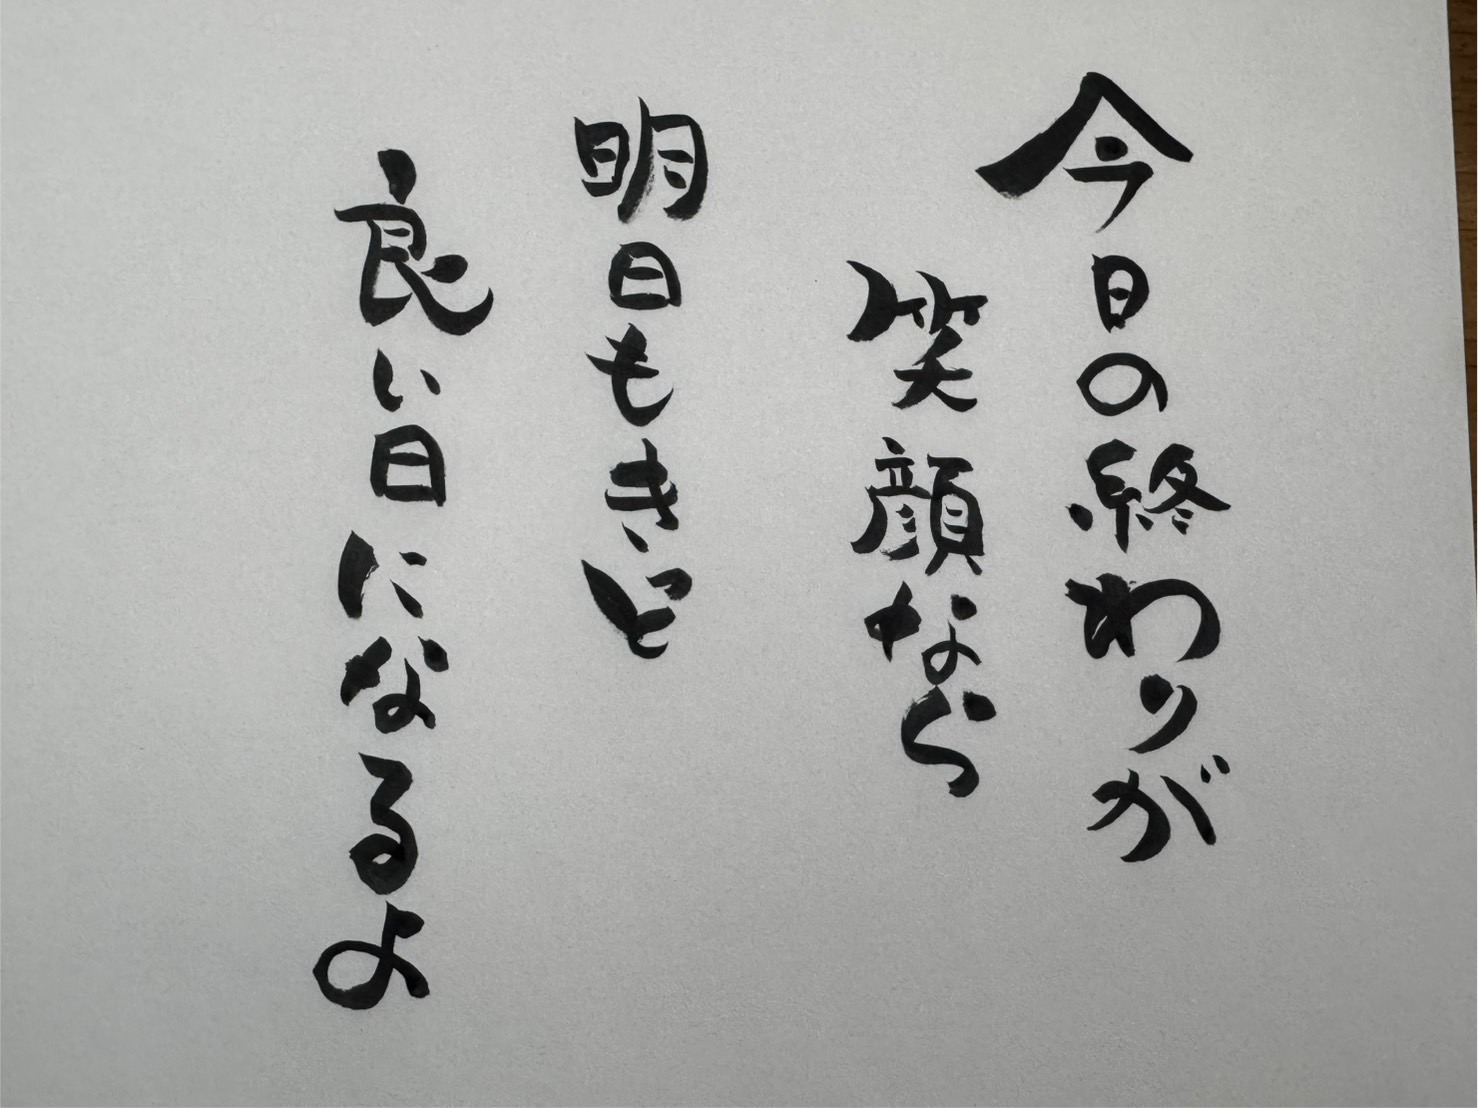 今日の終わりが
笑顔なら
明日もきっと
良い日になるよ